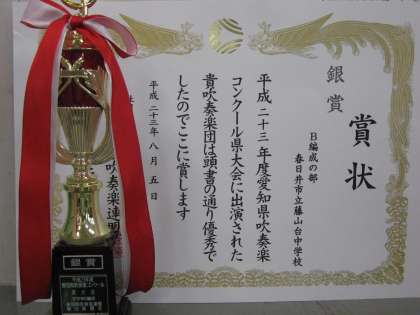 賞状
銀賞
B編成の部
春日井市立藤山台中学校
平成二十三年度愛知県吹奏楽
コンクール県大会に出演された
貴吹奏楽団は頭書の通り優秀で
したのでここに賞します
平成二十三年八月五日
吹奏楽連盟
銀賞